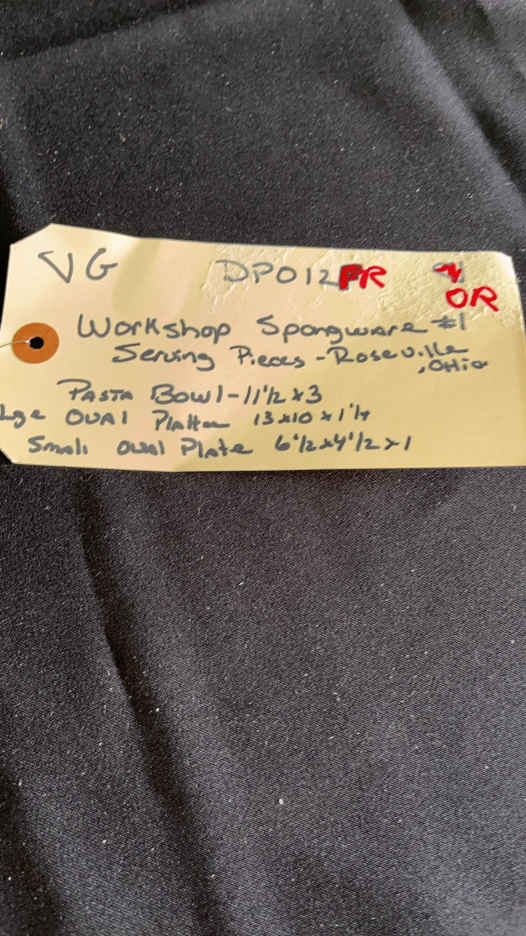 VG DP012PR
OR
Workshop Spongware #1
Serving Pieces - Roseville
, Ohio
Pasta Bowl - 11 1/2 x 3
Lge Oval Platter 13 x 10 x 1 1/4
Small Oval Plate 6 1/2 x 4 1/2 x 1